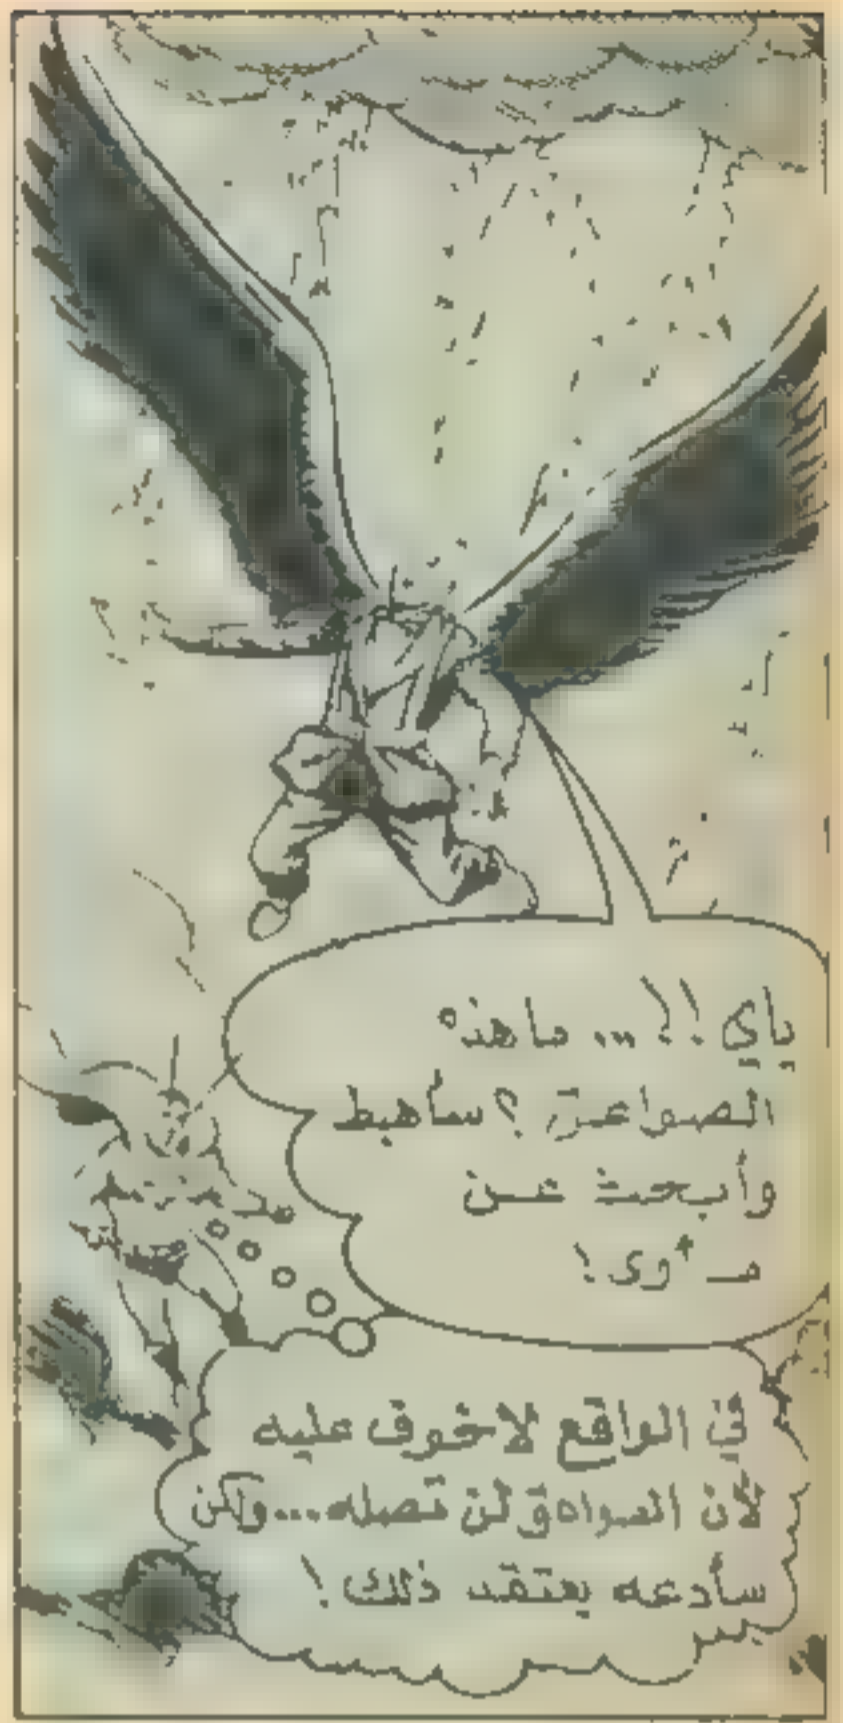 ياي!!... ما هذه
الصواعق؟ سأهبط
وأبحث عن
مأوى!
في الواقع لا خوف عليه
لأن الصواعق لن تصله...ولكن
سأدعه يعتقد ذلك!